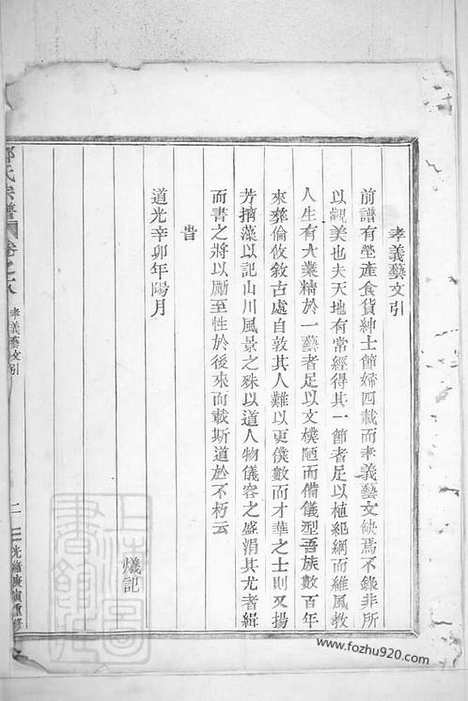 孝義藝文引
前譜有塋產食貨紳士節婦四載而孝義藝文缺焉不錄非所
以觀美也夫天地有常經得其一節者足以植紀綱而維風教
人生有大業精於一藝者足以文樸陋而備儀型吾族數百年
來彝倫攸敘古處自敦其人難以更僕數而才華之士則又揚
芳摛藻以記山川風景之殊以道人物儀容之盛涓其尤者緝
而書之將以勵至性於後來而載斯道於不朽云
旹
道光辛卯年陽月
氏宗譜 卷之八 孝義藝文引 二 光緒庚寅重修
www.fozhu920.com